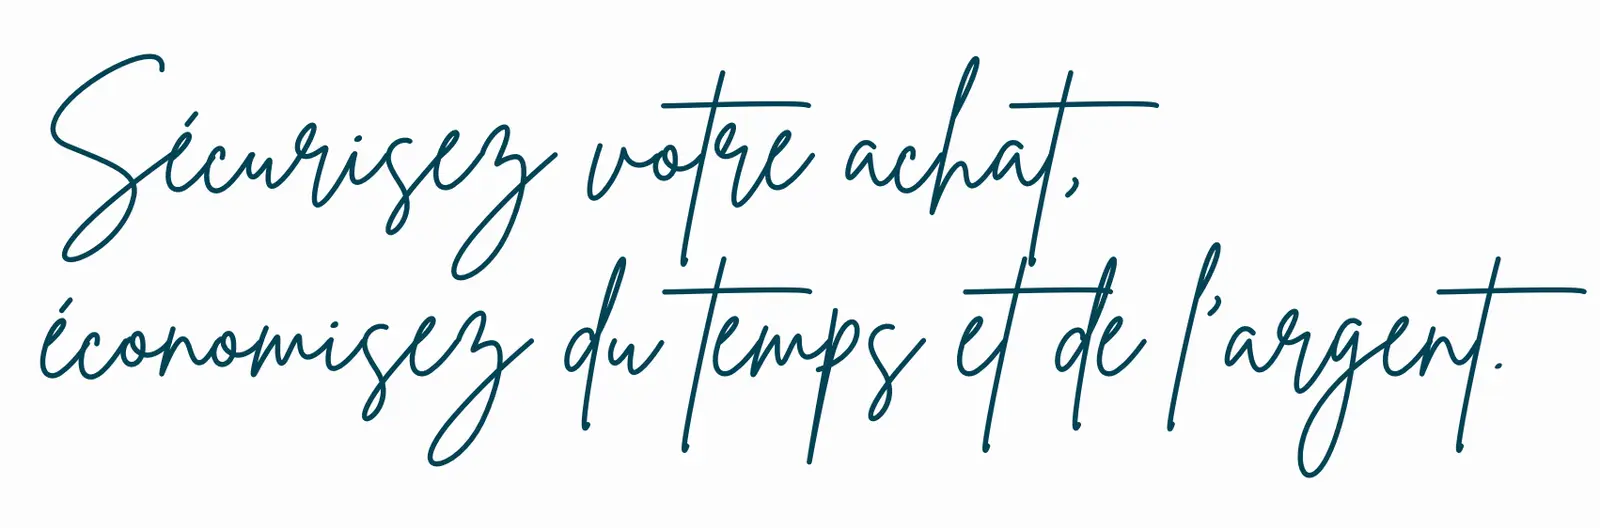 Sécurisez votre achat,
économisez du temps et de l'argent.